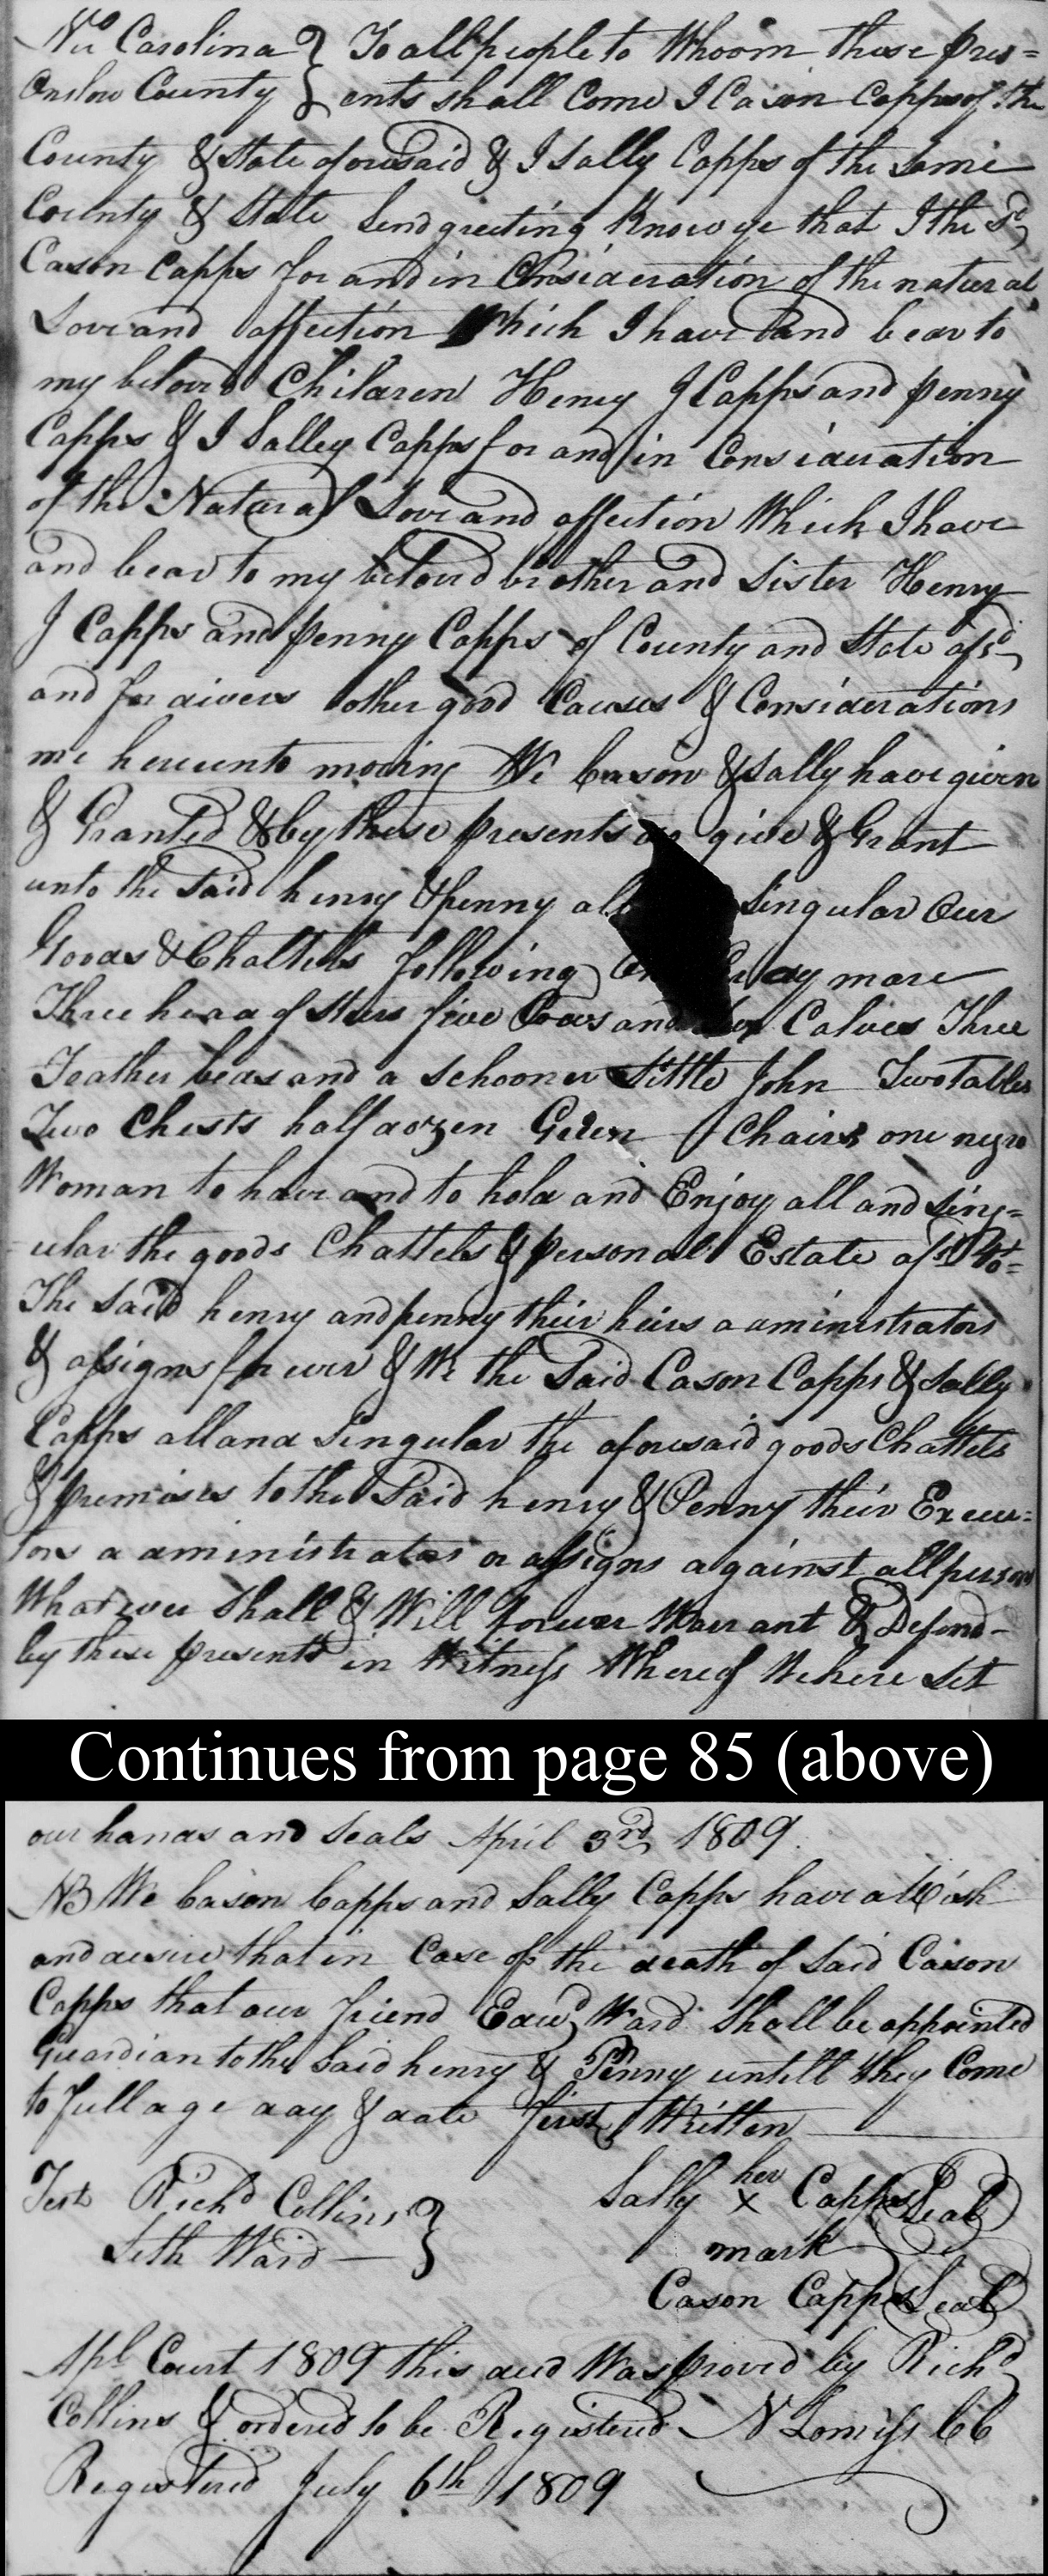 No Carolina } To all people to Whoom these pres=
Onslow County } ents shall Come I Cason Capps of the
County & State aforesaid & I Sally Capps of the Same
County & State Send greeting Know ye that I the Sd
Cason Capps for and in Consideration of the natural
Love and affection Which I have and bear to
my beloved Children Henry J Capps and penny
Capps & I Salley Capps for and in Consideration
of the Natural Love and affection Which I have
and bear to my beloved brother and Sister Henry
J Capps and penny Capps of County and State afsd
and for divers other good Causes & Considerations
me hereunto moving We Cason & Sally have given
& Granted & by these presents do give & Grant
unto the Said henry & penny all Singular Our
Goods & Chattels following mare
Three head of Steers five Cows and Calves Three
Feather beds and a Schooner Little John Two Tables
Two Chests half dozen Green Chairs one negro
Woman to have and to hold and Enjoy all and Sing=
ular the goods Chattels & personal Estate afsd to=
The Said henry and penny their heirs administrators
& assigns for ever & We the Said Cason Capps & Sally
Capps all and Singular the aforesaid goods Chattels
& premises to the Said henry & Penny their Execu=
tors administrators or assigns against all persons
Whatsoever Shall & Will forever Warrant & Defend-
by these presents in Witness Whereof We here Set
Continues from page 85 (above)
our hands and Seals April 3rd 1809.
NB We Cason Capps and Sally Capps have a Wish
and desire that in Case of the death of Said Cason
Capps that our friend Edwd Ward Shall be appointed
Guardian to the Said henry & Penny untill they Come
to full age day & date first Written
Test Richd Collins } Sally her x Capps Seal
Seth Ward — } mark
Cason Capps Seal
Apl Court 1809 this deed Was proved by Richd
Collins & ordered to be Registered N Lomiss CC
Registered July 6th 1809